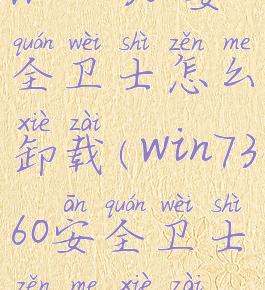 quán wèi shì zěn me
全卫士怎么
xiè zài
卸载(win73
ān quán wèi shì
60安全卫士
zěn me xiè zài